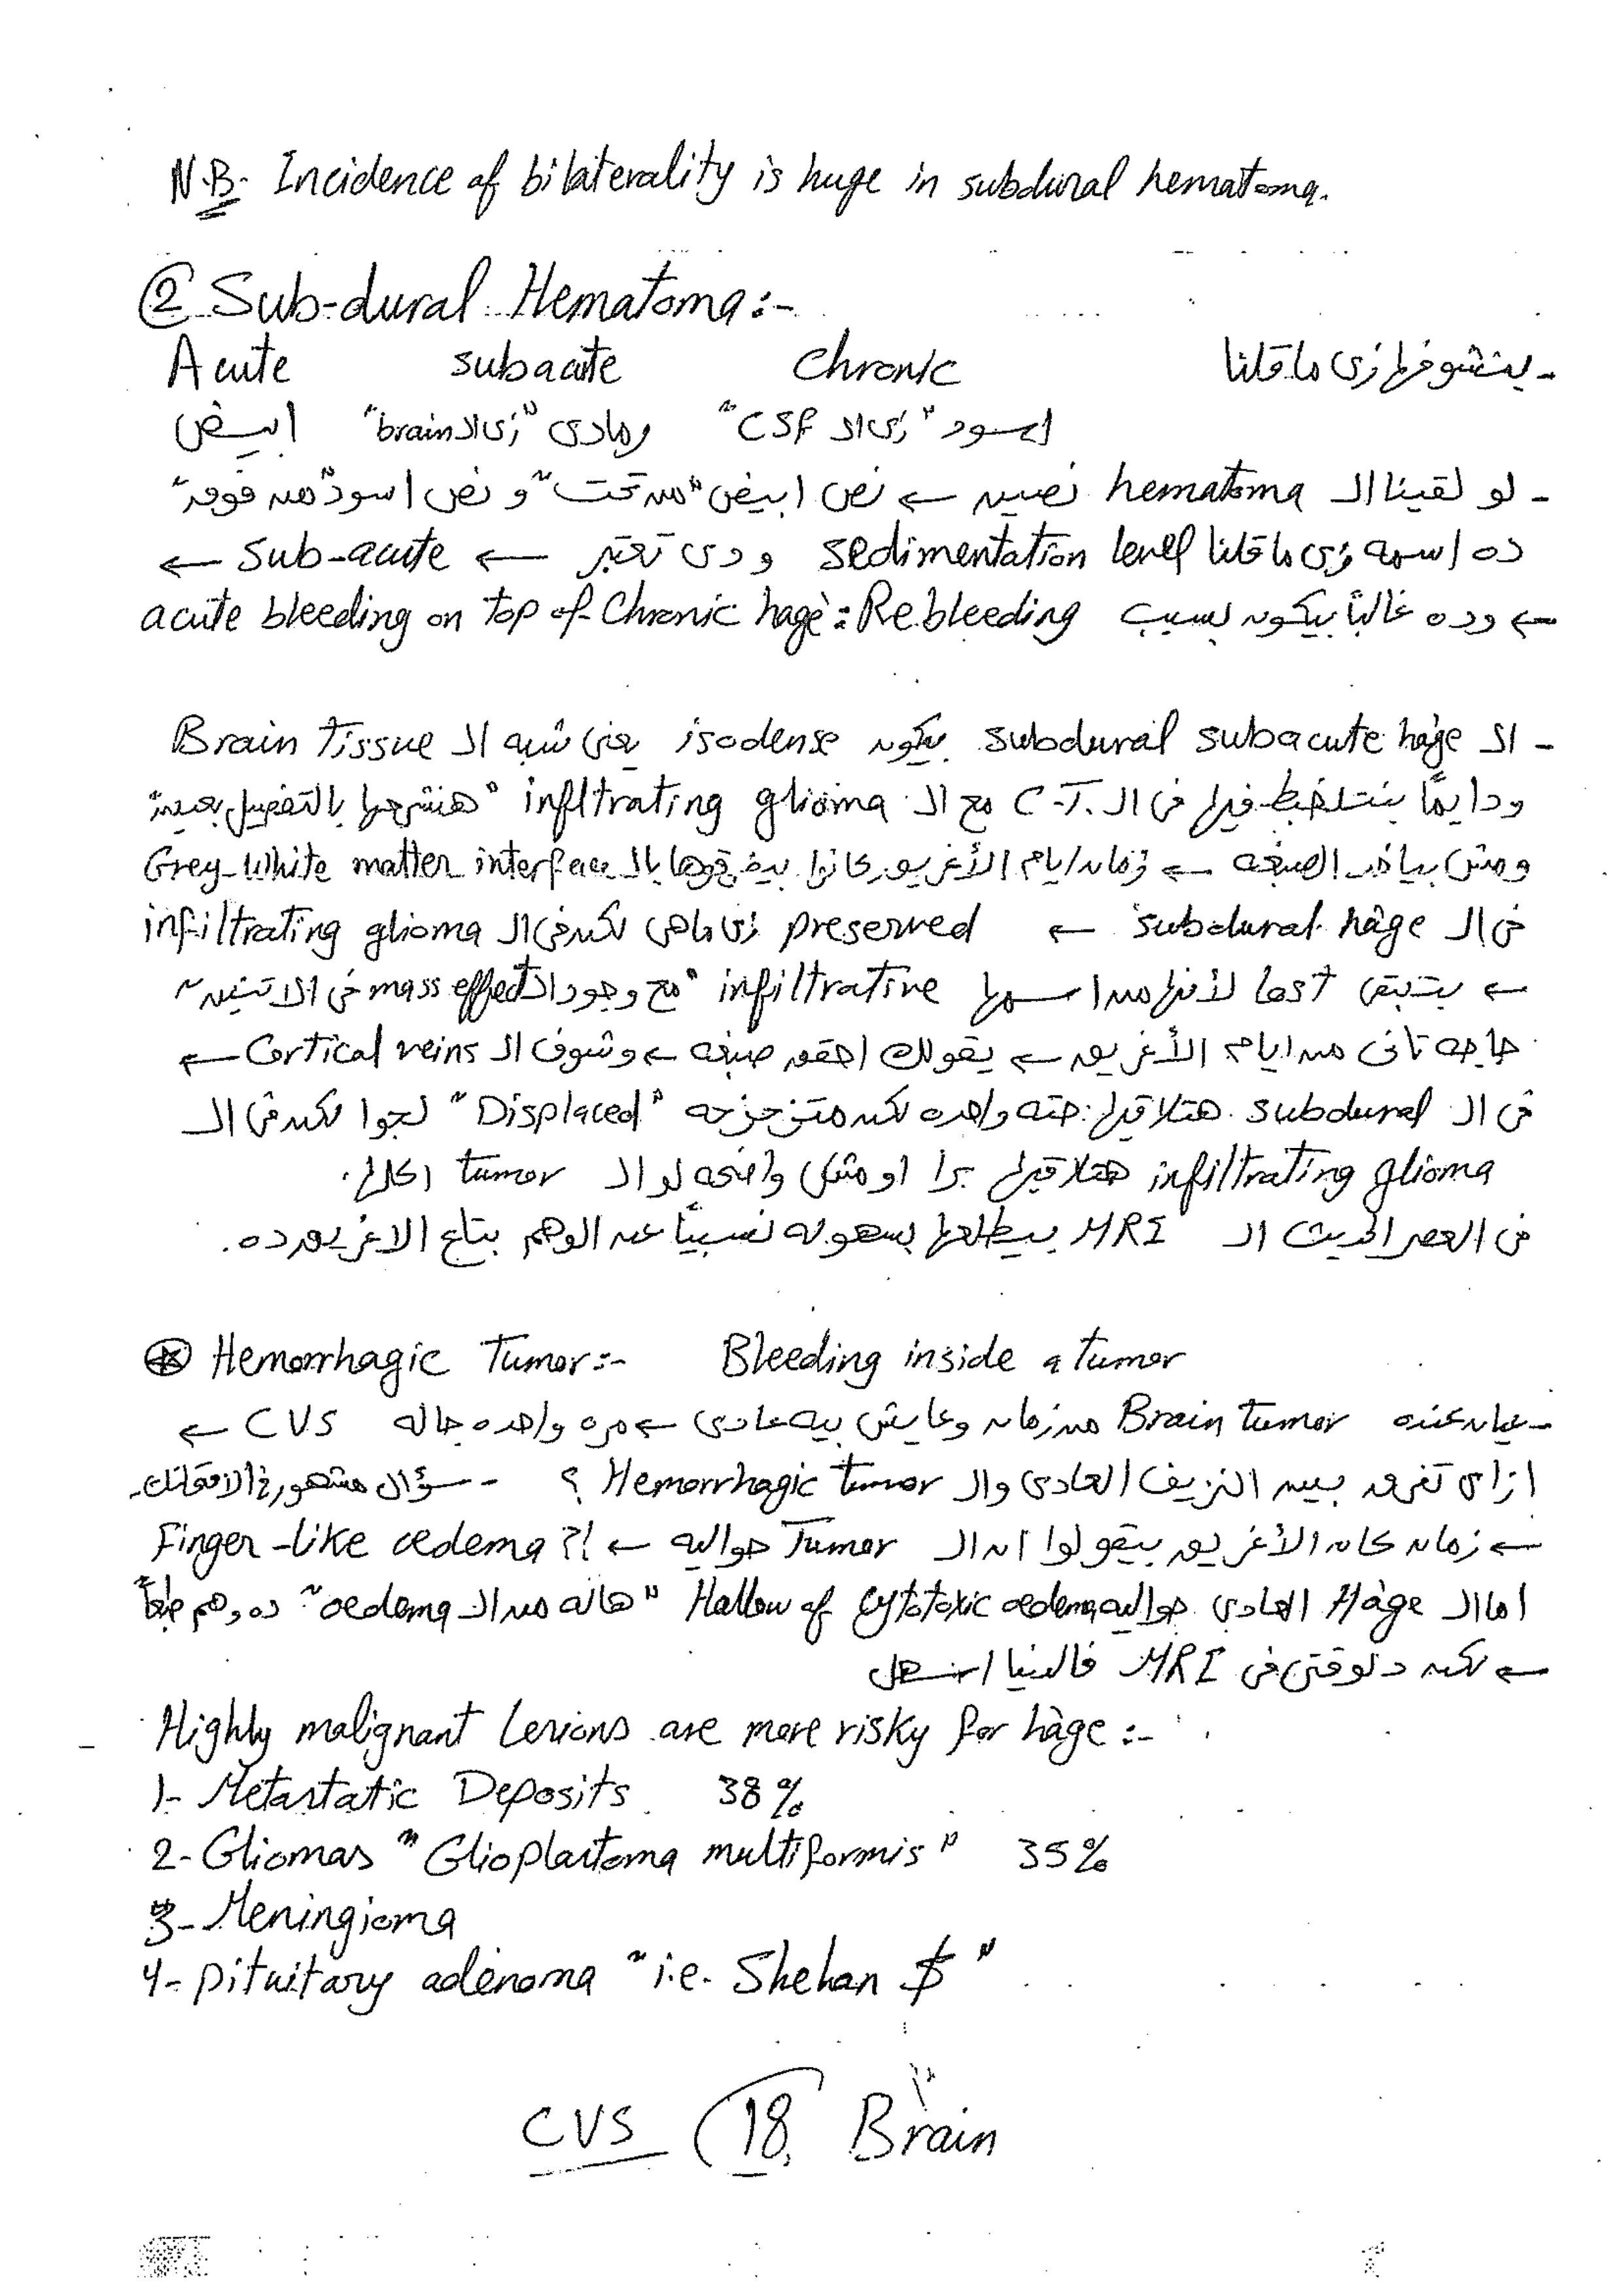 N.B. Incidence of bilaterality is huge in subdural hematoma.
② Sub-dural Hematoma:-
- بنشوفها زى ما قلنا Acute subacute Chronic
ابيض رمادى "زى الـ brain" اسود "زى الـ CSF"
- لو لقينا الـ hematoma نصين ← نص ابيض "من تحت" و نص اسود "من فوق"
ده اسمه زى ما قلنا sedimentation level و دى تعتبر ← Sub-acute ←
← وده غالباً بيكون بسبب Rebleeding : acute bleeding on top of Chronic hage
- الـ subdural subacute hage بيكون isodense يعنى شبه الـ Brain Tissue
ودايماً بنتلخبط فيها فى الـ C.T. مع الـ infiltrating glioma "هنشرحها بالتفصيل بعدين"
ومش بياخد الصبغه ← زمان ايام الأغريق كانوا بيفرقوها بالـ Grey-White matter interface
فى الـ subdural hage ← preserved زى ما هى لكن فى الـ infiltrating glioma
← بتبقى lost لأنها من اسمها infiltrative "مع وجود الـ mass effect فى الاتنين"
حاجه تانى من ايام الأغريق ← يقولك احقن صبغه ← وشوف الـ Cortical veins ←
فى الـ subdural هتلاقيها حته واحده لكن متزحزحه "Displaced" لجوا لكن فى الـ
infiltrating glioma هتلاقيها برا او مش واضحه لو الـ tumor اكلها.
فى العصر الحديث الـ MRI بيطلعها بسهوله نسبياً عن الوهم بتاع الاغريق ده.
⊛ Hemorrhagic Tumor:- Bleeding inside a tumor
- عيان عنده Brain tumor من زمان وعايش بيه عادى ← مره واحده جاله CVS ←
ازاى تفرق بين النزيف العادى والـ Hemorrhagic tumor ؟ - سؤال مشهور فى الامتحانات.
← زمان كان الأغريق بيقولوا ان الـ Tumor حواليه ← Finger-like oedema ?!
اما الـ Hage العادى حواليه Hallow of Cytotoxic oedema "هاله من الـ oedema" ده وهم طبعاً
← لكن دلوقتى فى MRI فالدنيا اسهل
Highly malignant Lesions are more risky for hage :-
1- Metastatic Deposits 38%
2- Gliomas "Glioplastoma multiformis" 35%
3- Meningioma
4- pituitary adenoma "i.e. Shehan $"
CVS 18 Brain